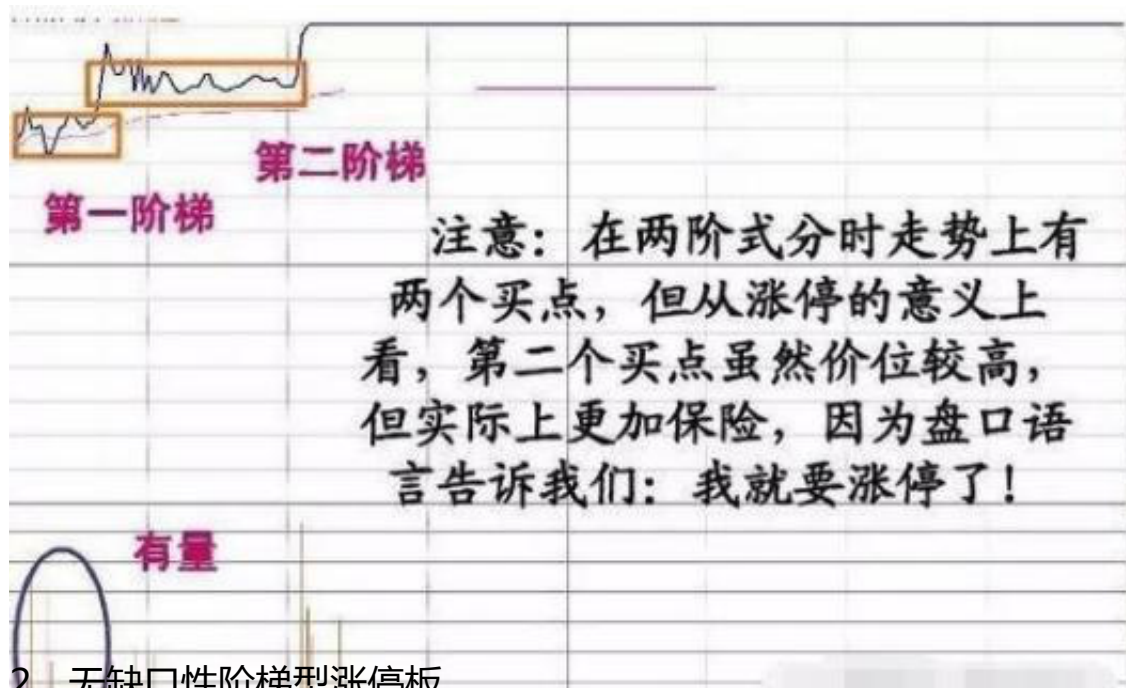 第二阶梯
第一阶梯
注意：在两阶式分时走势上有
两个买点，但从涨停的意义上
看，第二个买点虽然价位较高，
但实际上更加保险，因为盘口语
言告诉我们：我就要涨停了！
有量
2、无缺口性阶梯型涨停板